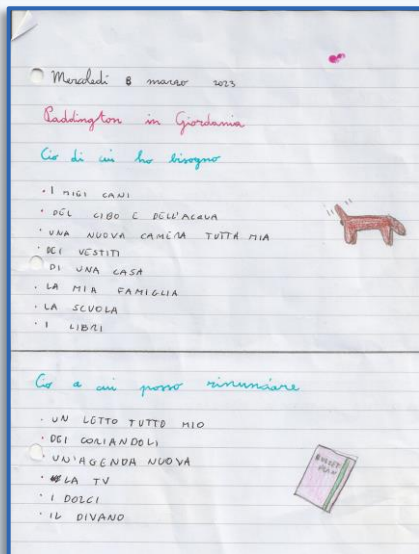 Mercoledì 8 marzo 2023
Paddington in Giordania
Ciò di cui ho bisogno
· I MIEI CANI
· DEL CIBO E DELL'ACQUA
· UNA NUOVA CAMERA TUTTA MIA
· DEI VESTITI
DI UNA CASA
· LA MIA FAMIGLIA
· LA SCUOLA
· I LIBRI
Ciò a cui posso rinunciare
· UN LETTO TUTTO MIO
· DEI CORIANDOLI
UN'AGENDA NUOVA
· LA TV
· I DOLCI
· IL DIVANO